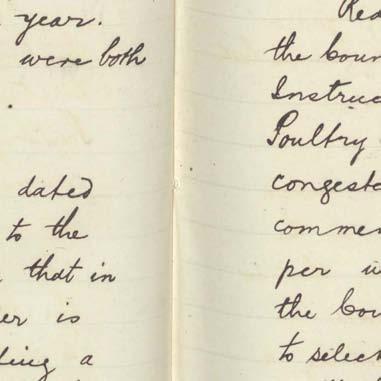 year.
were both
dated
to the
that in
er is
ting a
Rea
the Coun
Instruc
Poultry
congeste
commen
per w
the Cou
to select